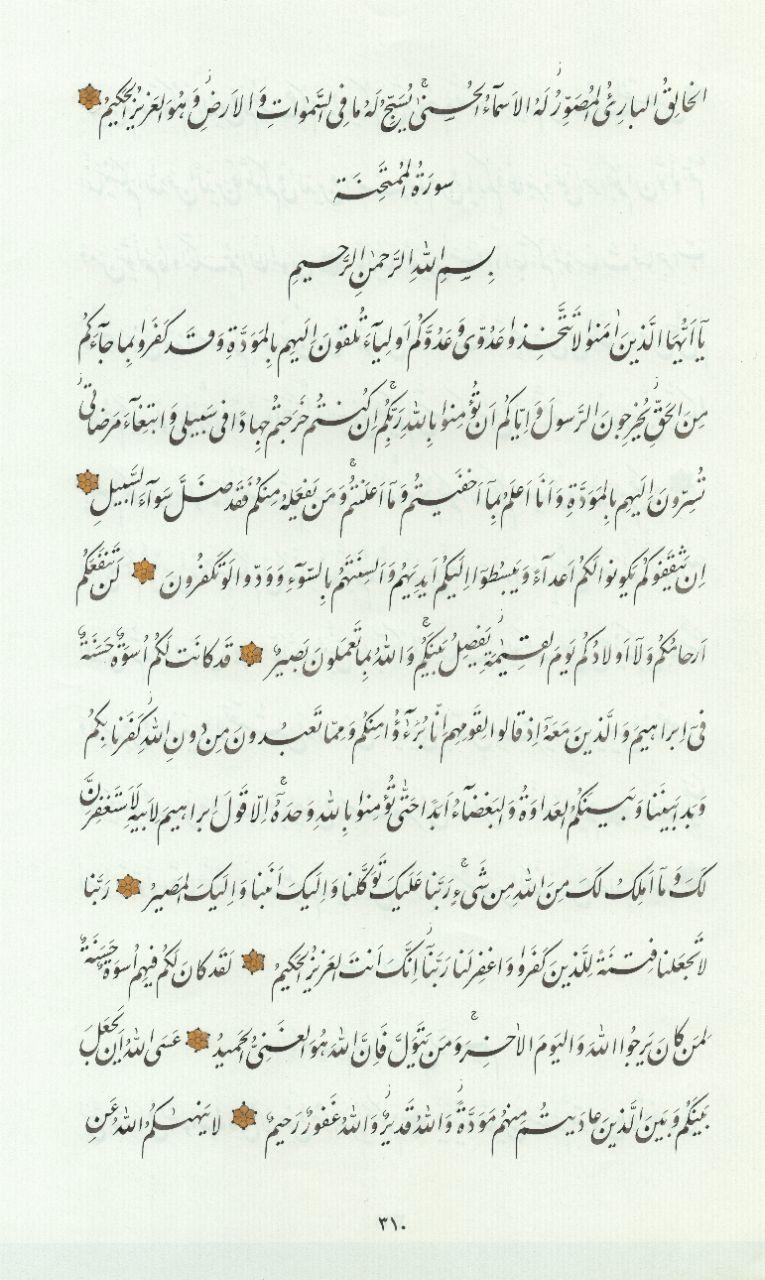 الخالِقُ البارِئُ المُصَوِّرُ لَهُ الاَسمآءُ الحُسنىٰ يُسَبِّحُ لَهُ ما فِى السَّمٰواتِ وَ الاَرضِ وَ هُوَ العَزيزُ الحَكيمُ
سورَةُ المُمتَحِنَة
بِسمِ اللهِ الرَّحمٰنِ الرَّحيمِ
يآ اَيُّهَا الَّذينَ ءامَنوا لا تَتَّخِذوا عَدُوّى وَ عَدُوَّكُم اَولِيآءَ تُلقونَ اِلَيهِم بِالمَوَدَّةِ وَ قَد كَفَروا بِما جآءَكُم
مِنَ الحَقِّ يُخرِجونَ الرَّسولَ وَ اِيّاكُم اَن تُؤمِنوا بِاللهِ رَبِّكُم اِن كُنتُم خَرَجتُم جِهادًا فى سَبيلى وَ ابتِغآءَ مَرضاتى
تُسِرّونَ اِلَيهِم بِالمَوَدَّةِ وَ اَنَا اَعلَمُ بِمآ اَخفَيتُم وَ مآ اَعلَنتُم وَ مَن يَفعَلهُ مِنكُم فَقَد ضَلَّ سَوآءَ السَّبيلِ
اِن يَثقَفوكُم يَكونوا لَكُم اَعدآءً وَ يَبسُطوٓا اِلَيكُم اَيدِيَهُم وَ اَلسِنَتَهُم بِالسّوٓءِ وَ وَدّوا لَو تَكفُرونَ لَن تَنفَعَكُم
اَرحامُكُم وَ لآ اَولادُكُم يَومَ القِيٰمَةِ يَفصِلُ بَينَكُم وَ اللهُ بِما تَعمَلونَ بَصيرٌ قَد كانَت لَكُم اُسوَةٌ حَسَنَةٌ
فىٓ اِبراهيمَ وَ الَّذينَ مَعَهُٓ اِذ قالوا لِقَومِهِم اِنّا بُرَءٰٓؤُا مِنكُم وَ مِمّا تَعبُدونَ مِن دونِ اللهِ كَفَرنا بِكُم
وَ بَدا بَينَنا وَ بَينَكُمُ العَداوَةُ وَ البَغضآءُ اَبَدًا حَتّىٰ تُؤمِنوا بِاللهِ وَحدَهُٓ اِلّا قَولَ اِبراهيمَ لِاَبيهِ لَاَستَغفِرَنَّ
لَكَ وَ مآ اَملِكُ لَكَ مِنَ اللهِ مِن شَىءٍ رَبَّنا عَلَيكَ تَوَكَّلنا وَ اِلَيكَ اَنَبنا وَ اِلَيكَ المَصيرُ رَبَّنا
لا تَجعَلنا فِتنَةً لِلَّذينَ كَفَروا وَ اغفِر لَنا رَبَّنآ اِنَّكَ اَنتَ العَزيزُ الحَكيمُ لَقَد كانَ لَكُم فيهِم اُسوَةٌ حَسَنَةٌ
لِمَن كانَ يَرجُوا اللهَ وَ اليَومَ الاٰخِرَ وَ مَن يَتَوَلَّ فَاِنَّ اللهَ هُوَ الغَنِىُّ الحَميدُ عَسَى اللهُ اَن يَجعَلَ
بَينَكُم وَ بَينَ الَّذينَ عادَيتُم مِنهُم مَوَدَّةً وَ اللهُ قَديرٌ وَ اللهُ غَفورٌ رَحيمٌ لا يَنهىٰكُمُ اللهُ عَنِ
٣١٠